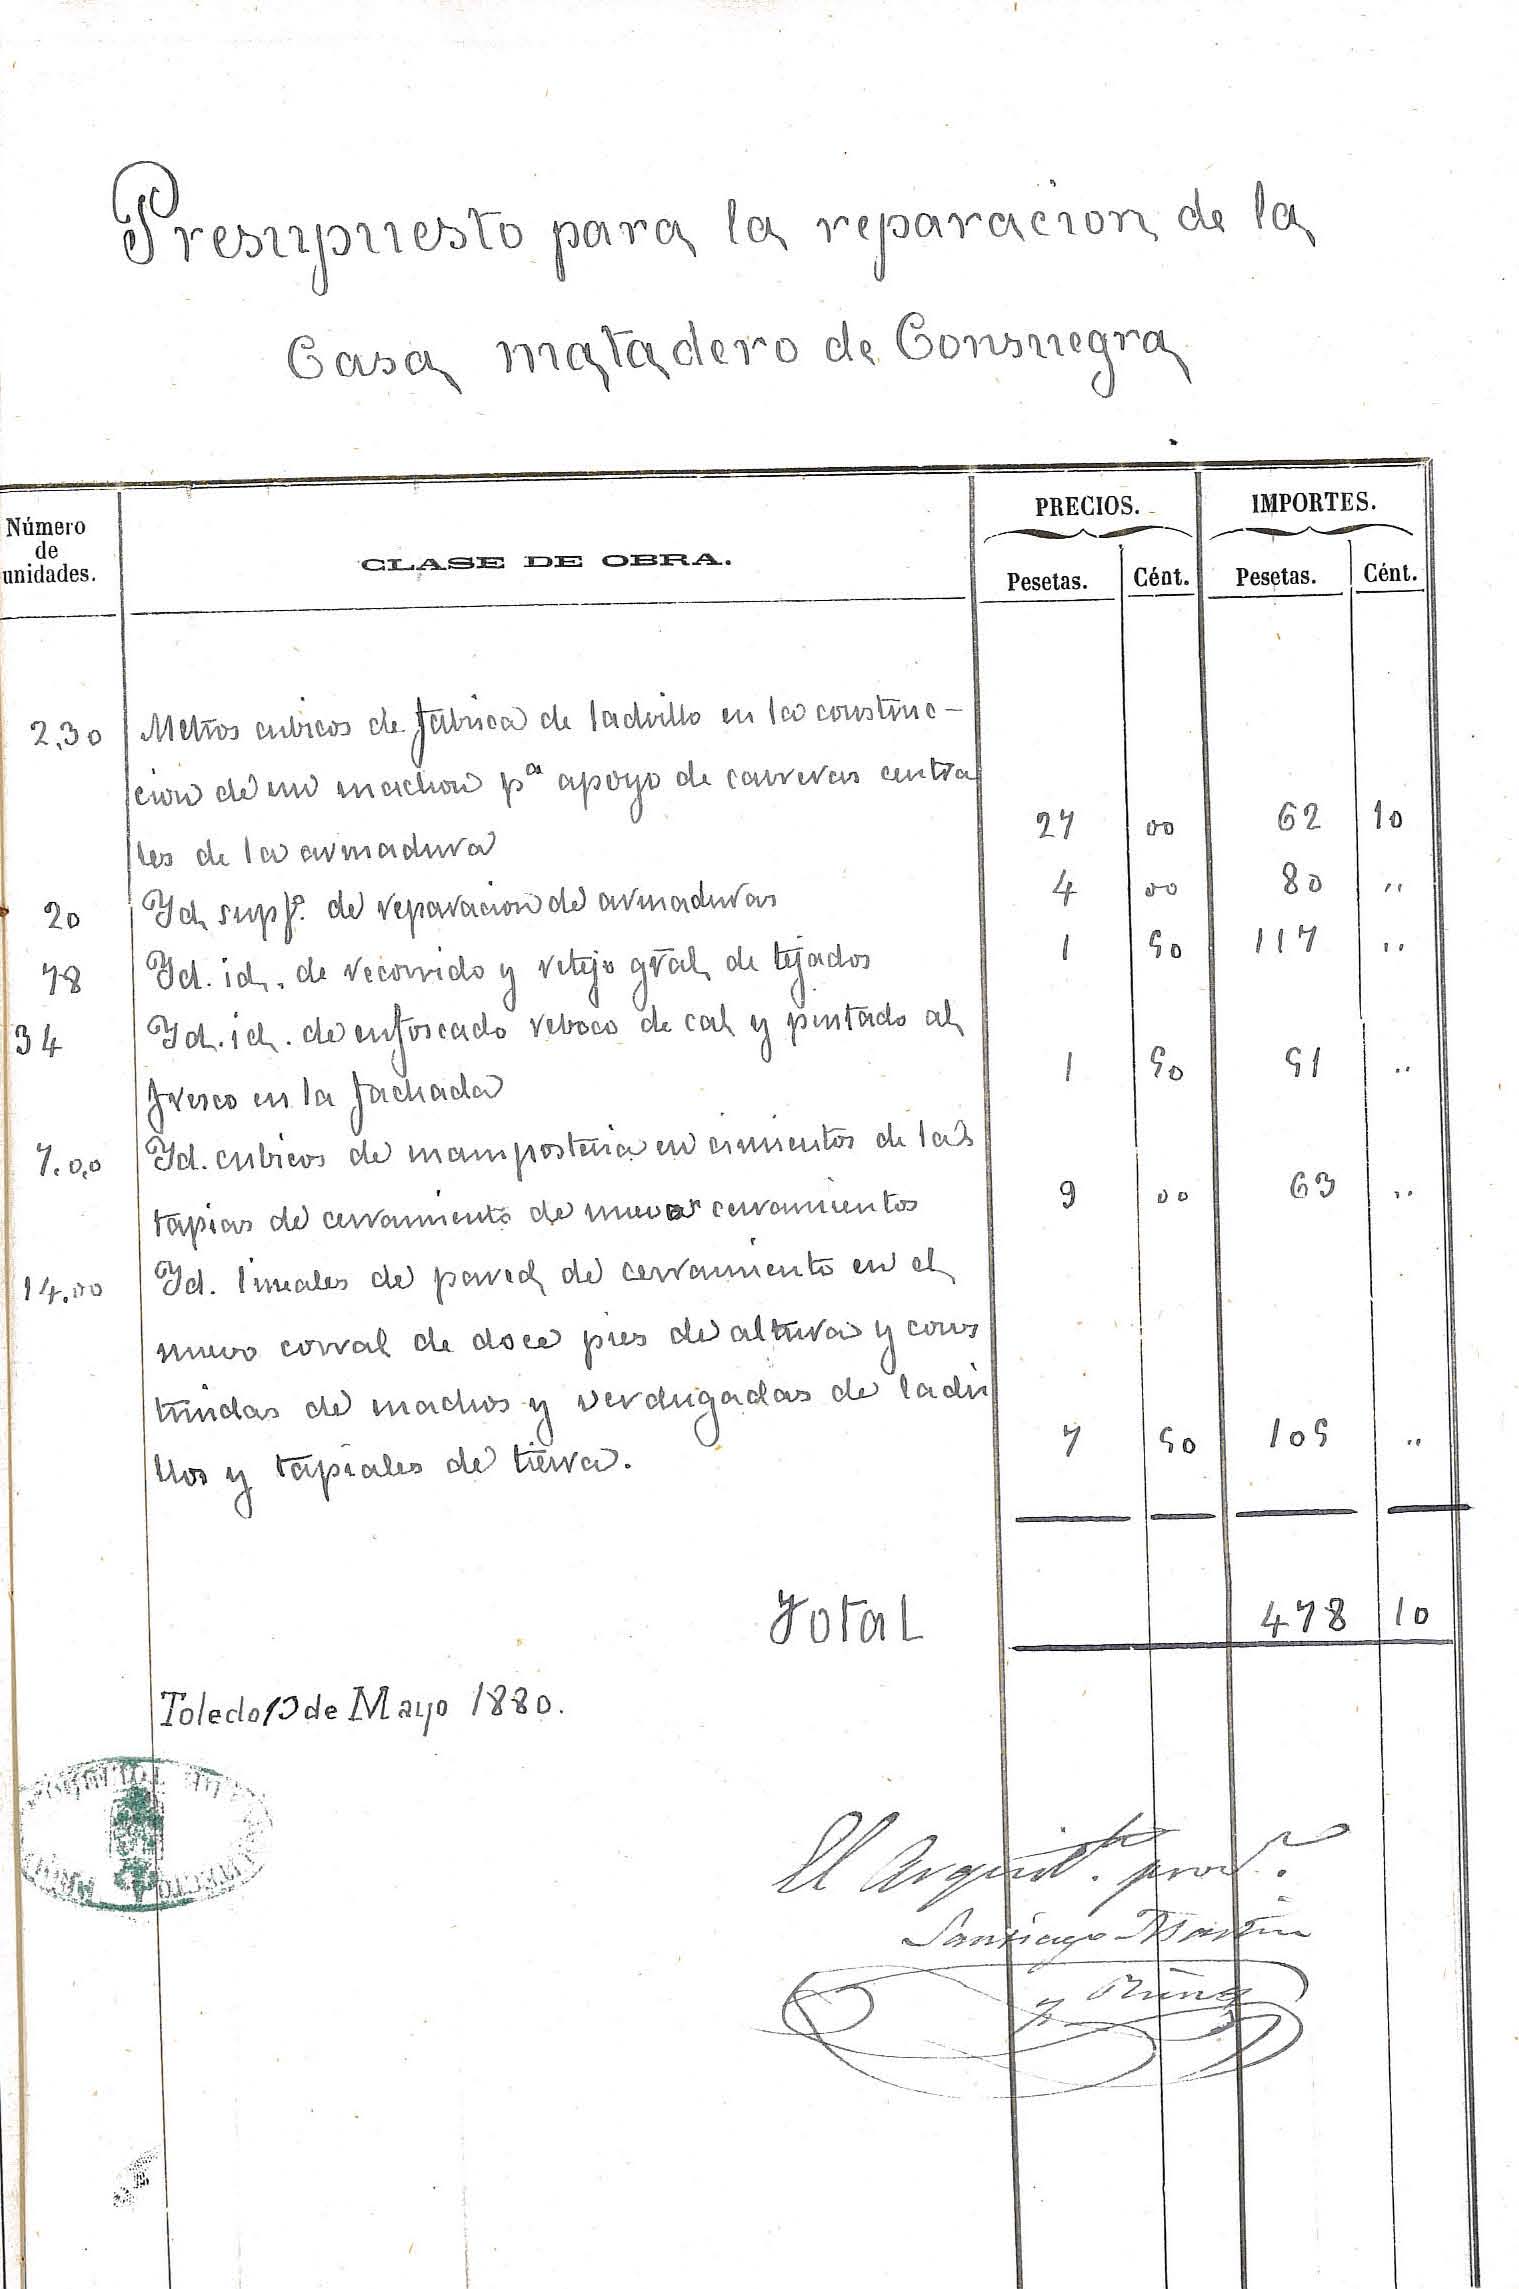 Presupuesto para la reparacion de la
Casa matadero de Consuegra
Número de unidades. CLASE DE OBRA. PRECIOS. IMPORTES.
Pesetas. Cént. Pesetas. Cént.
2,30 Metros cubicos de fabrica de ladrillo en la construc-
cion de un machon pª apoyo de carreras centra
les de la armadura 27 00 62 10
20 Id supf.s de reparacion de armaduras 4 00 80 ,,
78 Id. id. de recorrido y retejo gral de tejados 1 50 117 ,,
34 Id. id. de enfoscado revoco de cal y pintado al
fresco en la fachada 1 50 51 ,,
7.00 Id. cubicos de mamposteria en cimientos de las
tapias de cerramiento de nuevos cerramientos 9 00 63 ,,
14.00 Id. lineales de pared de cerramiento en el
nuevo corral de doce pies de altura y cons
truidas de machos y verdugadas de ladri
llos y tapiales de tierra. 7 50 105 ,,
Total 478 10
Toledo 13 de Mayo 1880.
El Arquit.to prov.l
Santiago Martin
y Ruiz